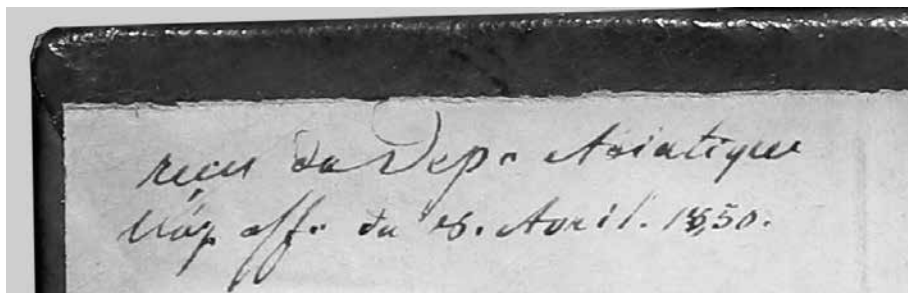 reçu du Dep. Asiatique
off. du 18. Avril. 1850.